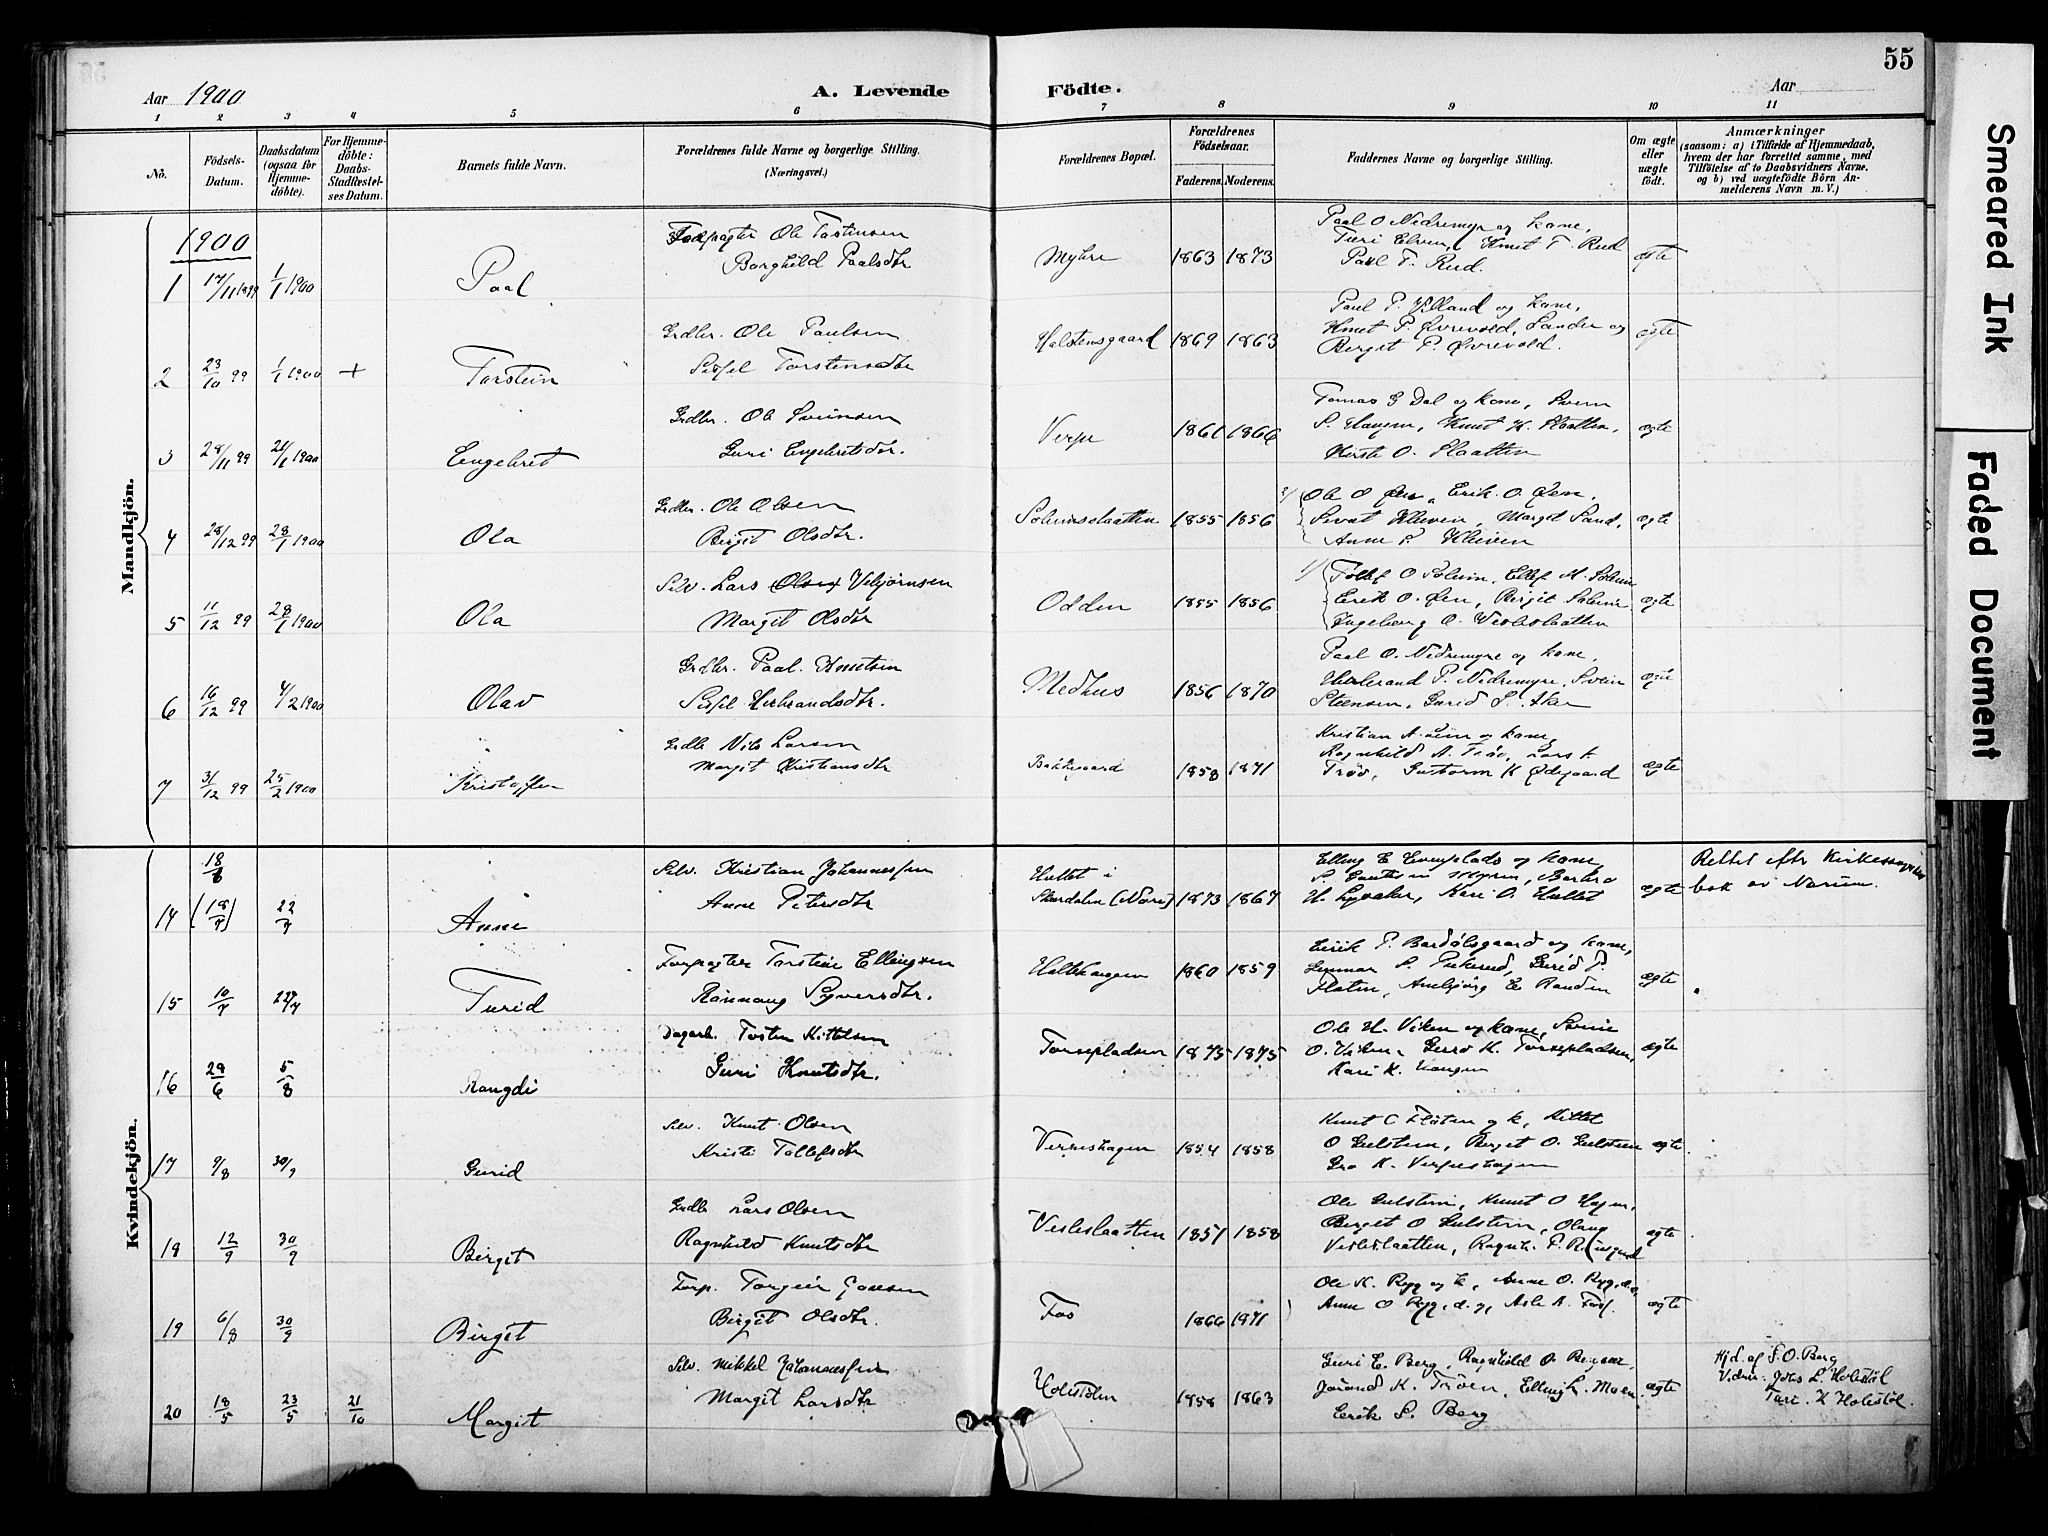 55
Aar 1900 A. Levende Födte. Aar
1 2 3 4 5 6 7 8 9 10 11
No. Födsels-Datum. Daabsdatum (ogsaa for Hjemmedöbte). For Hjemmedöbte: Daabs-Stadfæstelses Datum. Barnets fulde Navn. Forældrenes fulde Navne og borgerlige Stilling. (Næringsvei.) Forældrenes Bopæl. Forældrenes Födselsaar. Faderens. Moderens. Faddernes Navne og borgerlige Stilling. Om ægte eller uægte födt. Anmærkninger (saasom: a) i Tilfælde af Hjemmedaab, hvem der har forrettet samme, med Tilföielse af to Daabsvidners Navne, og b) ved uægtefödte Börn Anmelderens Navn m. V.)
Mandkjön.
1900
1 17/11 1899 1/1 1900 Paal
Ole Torstensen
Borghild Paalsdtr
Myhre 1863 1873
Paal O Nedremyr og kone,
Turi Elven, Knut T. Rud
Paul T. Rud.
ægte
2 23/10 99 1/1 1900 + Torstein
Grdbr. Ole Paulsen
Sissel Torstensdtr
Halstensgaard 1869 1863
Paul P. og kone,
Knut P. Øvrevold, Sander og
Berget P. Øvrevold.
ægte
3 28/11 99 21/1 1900 Engebret
Grdbr. Ole Sveinsen
Guri Engebretsdtr.
Verpe 1861 1866
Tomas G Dal og kone, Svein
S. Haugen, Knut K. Slaatten,
Kirsti O. Slaatten
ægte
4 28/12 99 28/1 1900 Ola
Grdbr. Ole Olsen
Birgit Olsdtr.
Solemsslaatten 1855 1856
2/ Ole O Øen, Erik O. Øen,
Sivat Kleven, Margit Sand,
Anne P. Kleven
ægte
5 11/12 99 28/1 1900 Ola
Selv. Lars Olsen Vebjørnsen
Margit Olsdtr
Odden 1855 1856
1/ Tollef O Solem, Ellef M. Solem
Erik O. Øen, Birgit Solem
Ingeborg O. Vesleslaatten
ægte
6 16/12 99 4/2 1900 Olav
Grdbr. Paal Knutsen
Sissel Herbrandsdtr.
Medhus 1856 1870
Paal O. Nedremyre og kone,
Herbrand P. Nedremyre, Svein
Steensen, Gurid S. Aker
ægte
7 31/12 99 25/2 1900 Kristoffer
Grdbr Nils Larsen
Margit Kristiansdtr
Bakkegaard 1858 1871
Kristian A og kone,
Ragnhild A. Trøo, Lars A
Trøo, Guttorm K Ødegaard
ægte
Kvindekjön.
14 18/8 (18/7) 22/7 Anne
Selv. Kristian Johannessen
Anne Petersdtr
Hultet i
Skurdalen (Nore) 1873 1867
Elling E Evensplads og kone,
Barbro
H. Kari O. Hultet
ægte
Rettet efter Kirkesangers
bok av
15 10/7 22/7 Turid
Forpagter Torstein Ellingsen
Rønnaug Syversdtr.
Holtehaugen 1860 1859
Eirik P. Bardølsgaard og kone,
Gunnar S. Gurid P.
Floten, Ambjørg E. Randen
ægte
16 29/6 5/8 Rangdi
Dagarb. Tosten Kittelsen
Guri Knutsdtr.
Torsepladsen 1873 1875
Ole H. Viken og kone, Svein
O. Viken, K. Torsepladsen,
Kari K. Haugen
ægte
17 9/8 30/9 Gurid
Selv. Knut Olsen
Kristi Tollefsdtr
Verpeshagen 1854 1858
Knut C Fløten og k, Kittel
O Gulsteen, Berget O. Gulsteen
Gro K. Verpeshagen
ægte.
18 12/9 30/9 Birget
Grdbr Lars Olsen
Ragnhild Knutsdtr
Vesleslaatten 1851 1858
Ole Gulstein, Knut O Hagen,
Berget O Gulstein, Olaug
Vesleslaatten, Ragnh. P.
ægte
19 6/8 30/9 Birget
Forp. Torgeir Jonsen
Birgit Olsdtr.
Fos 1866 1871
Ole K. Rygg og k, Anne O. Rygg,
Anne O Rygg, d. y, Asle A. Foss.
ægte
20 18/5 23/5 21/10 Margit
Selv. Mikkel Johannessen
Margit Larsdtr
Holestølen 1858 1863
Guri E. Berg, Ragnhild O.
Jørand K. Trøen, Elling L. Moen
Erik S. Berg
ægte
Hjd. af S. O. Berg
Vidner L. Holestøl
K Holestøl.
Smeared Ink
Faded Document